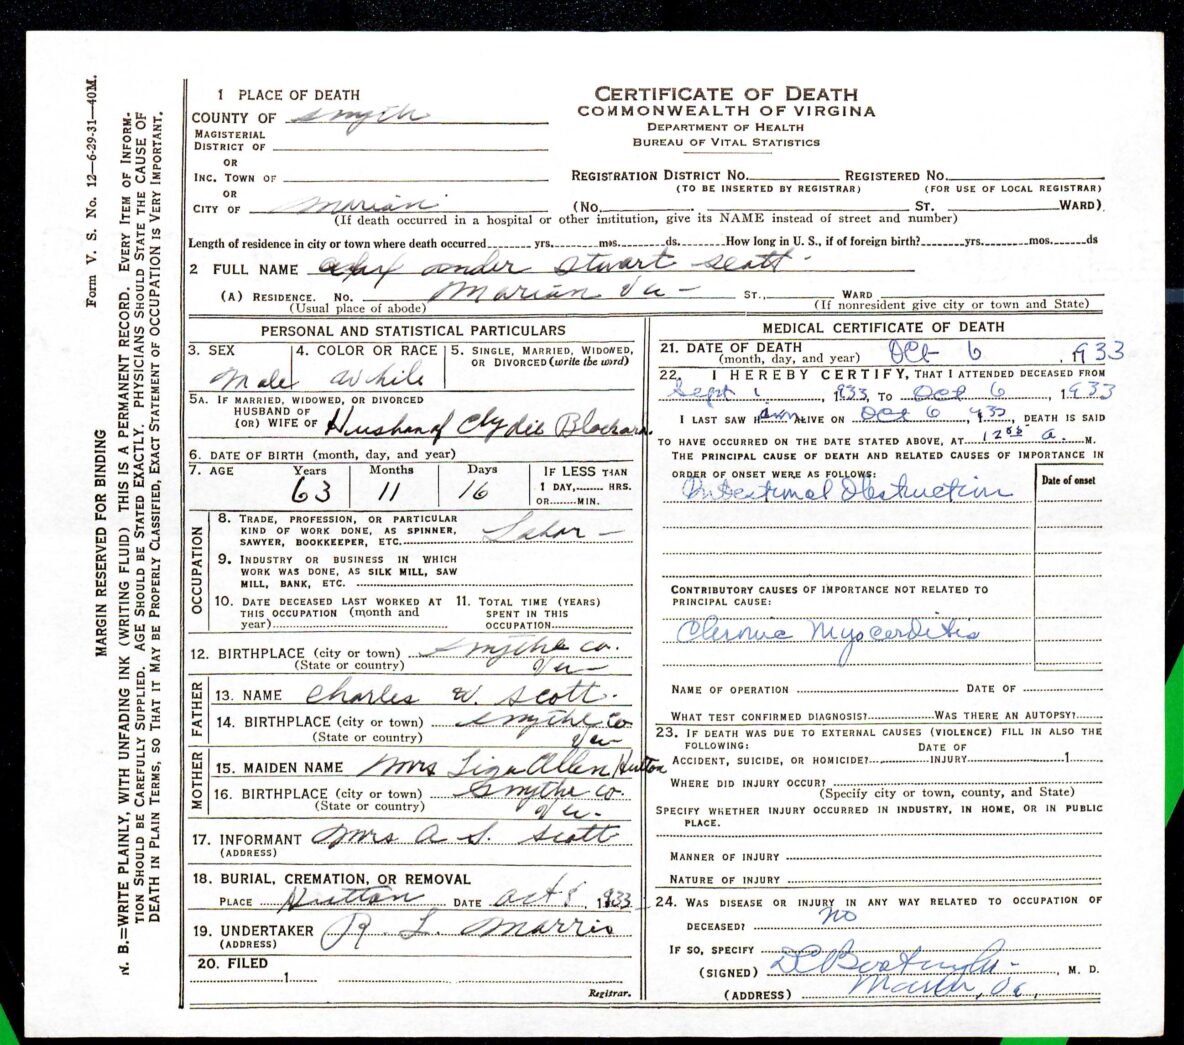 Form V. S. No. 12—6-29-31—40M.
MARGIN RESERVED FOR BINDING
N. B.—WRITE PLAINLY, WITH UNFADING INK (WRITING FLUID) THIS IS A PERMANENT RECORD. EVERY ITEM OF INFORM-
TION SHOULD BE CAREFULLY SUPPLIED. AGE SHOULD BE STATED EXACTLY. PHYSICIANS SHOULD STATE THE CAUSE OF
DEATH IN PLAIN TERMS, SO THAT IT MAY BE PROPERLY CLASSIFIED, EXACT STATEMENT OF OCCUPATION IS VERY IMPORTANT.
CERTIFICATE OF DEATH
COMMONWEALTH OF VIRGINA
DEPARTMENT OF HEALTH
BUREAU OF VITAL STATISTICS
1 PLACE OF DEATH
COUNTY OF Smyth
MAGISTERIAL
DISTRICT OF
OR
INC. TOWN OF
OR
CITY OF Marian
REGISTRATION DISTRICT NO. REGISTERED NO.
(TO BE INSERTED BY REGISTRAR) (FOR USE OF LOCAL REGISTRAR)
(No. ST. WARD)
(If death occurred in a hospital or other institution, give its NAME instead of street and number)
Length of residence in city or town where death occurred yrs. mos. ds. How long in U. S., if of foreign birth? yrs. mos. ds
2 FULL NAME ander Stuart Scott
(A) RESIDENCE. No. Marian Va ST., WARD
(Usual place of abode) (If nonresident give city or town and State)
PERSONAL AND STATISTICAL PARTICULARS
3. SEX 4. COLOR OR RACE 5. SINGLE, MARRIED, WIDOWED,
OR DIVORCED (write the word)
Male White
5A. IF MARRIED, WIDOWED, OR DIVORCED
HUSBAND OF
(OR) WIFE OF Husband of Clydie
6. DATE OF BIRTH (month, day, and year)
7. AGE Years Months Days IF LESS THAN
1 DAY, HRS.
OR MIN.
63 11 16
OCCUPATION
8. TRADE, PROFESSION, OR PARTICULAR
KIND OF WORK DONE, AS SPINNER,
SAWYER, BOOKKEEPER, ETC. Labor
9. INDUSTRY OR BUSINESS IN WHICH
WORK WAS DONE, AS SILK MILL, SAW
MILL, BANK, ETC.
10. DATE DECEASED LAST WORKED AT
THIS OCCUPATION (month and
year)
11. TOTAL TIME (YEARS)
SPENT IN THIS
OCCUPATION
12. BIRTHPLACE (city or town) Smythe Co.
(State or country) Va
FATHER
13. NAME Charles W. Scott.
14. BIRTHPLACE (city or town) Smythe Co
(State or country) Va
MOTHER
15. MAIDEN NAME Mrs Liza Allen Hutton
16. BIRTHPLACE (city or town) Smythe Co.
(State or country) Va.
17. INFORMANT Mrs A S. Scott
(ADDRESS)
18. BURIAL, CREMATION, OR REMOVAL
PLACE Hutton DATE Oct 8, 1933
19. UNDERTAKER R. L. Marris
(ADDRESS)
20. FILED
1
Registrar.
MEDICAL CERTIFICATE OF DEATH
21. DATE OF DEATH
(month, day, and year) Oct 6, 1933
22. I HEREBY CERTIFY, THAT I ATTENDED DECEASED FROM
Sept 1, 1933, TO Oct 6, 1933
I LAST SAW H im ALIVE ON Oct 6, 1933, DEATH IS SAID
TO HAVE OCCURRED ON THE DATE STATED ABOVE, AT 12 05 a. M.
THE PRINCIPAL CAUSE OF DEATH AND RELATED CAUSES OF IMPORTANCE IN
ORDER OF ONSET WERE AS FOLLOWS:
Date of onset
Intestinal Obstruction
CONTRIBUTORY CAUSES OF IMPORTANCE NOT RELATED TO
PRINCIPAL CAUSE:
Chronic Myocarditis
NAME OF OPERATION DATE OF
WHAT TEST CONFIRMED DIAGNOSIS? WAS THERE AN AUTOPSY?
23. IF DEATH WAS DUE TO EXTERNAL CAUSES (VIOLENCE) FILL IN ALSO THE
FOLLOWING: DATE OF
ACCIDENT, SUICIDE, OR HOMICIDE? INJURY 1
WHERE DID INJURY OCCUR?
(Specify city or town, county, and State)
SPECIFY WHETHER INJURY OCCURRED IN INDUSTRY, IN HOME, OR IN PUBLIC
PLACE.
MANNER OF INJURY
NATURE OF INJURY
24. WAS DISEASE OR INJURY IN ANY WAY RELATED TO OCCUPATION OF
DECEASED? No
IF SO, SPECIFY
(SIGNED) , M. D.
(ADDRESS) Marion, Va,